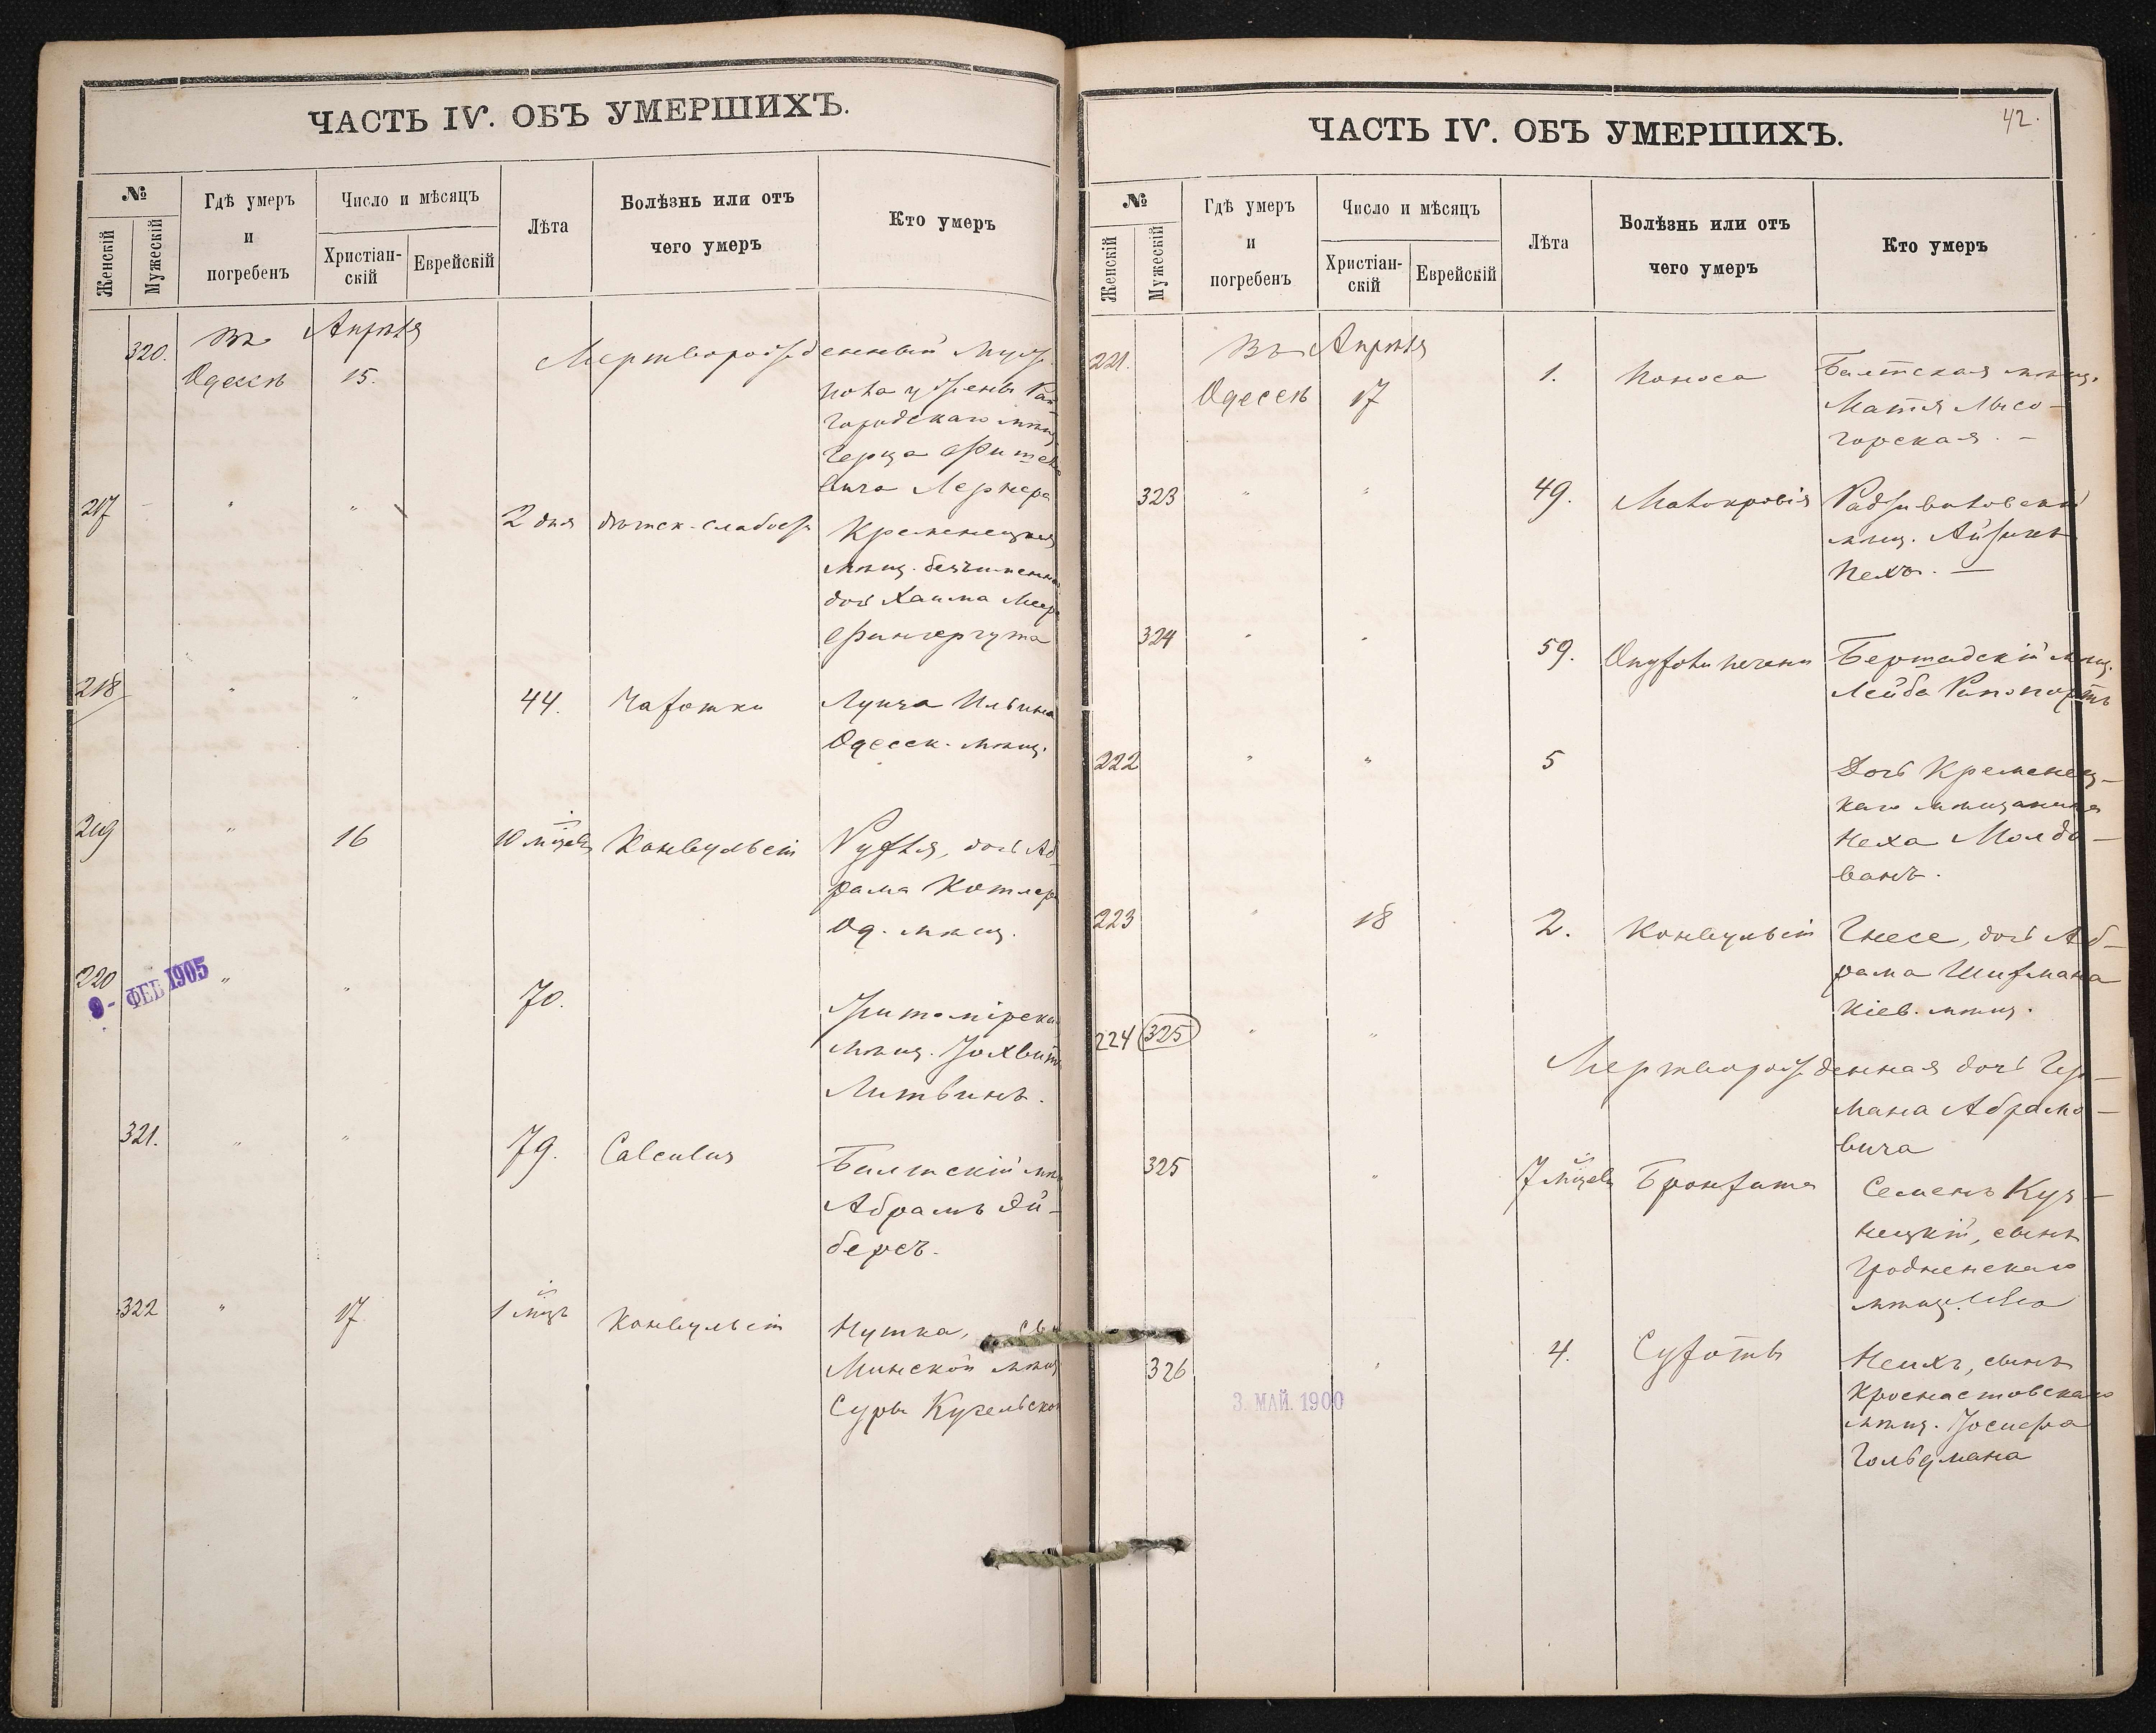 ЧАСТЬ IV. ОБЪ УМЕРШИХЪ.
№
Женскій
Мужескій
Гдѣ умеръ
и
погребенъ
Число и мѣсяцъ
Христіан-
скій
Еврейскій
Лѣта
Болѣзнь или отъ
чего умеръ
Кто умеръ
320.
Въ
Одессѣ
Апрѣля
15.
Мертворожденный муж.
пола у жены Рай-
городскаго мѣщ.
Герца
вича Лернера
217
2 дня
дѣтск. слабость
Кременецкая
мѣщ. безъименная
дочь Хаима Меера
Фингергута
218
44.
Чахотки
Ильина
Одесск. мѣщ.
219
16
10 мѣсяцевъ
Конвульсіи
Рухля, дочь Аб-
рама Котлера
Од. мѣщ.
220
9 - ФЕВ 1905
70.
Житомірская
мѣщ. Іохвитъ
Литвинъ.
321.
79.
Calculus
Балтскій мѣщ.
Абрамъ Эй-
бересъ.
322
17
1 мѣсяцъ
Конвульсіи
Нутка, сынъ
Минской мѣщ.
Суры Кугельской
42.
ЧАСТЬ IV. ОБЪ УМЕРШИХЪ.
№
Женскій
Мужескій
Гдѣ умеръ
и
погребенъ
Число и мѣсяцъ
Христіан-
скій
Еврейскій
Лѣта
Болѣзнь или отъ
чего умеръ
Кто умеръ
221.
Въ
Одессѣ
Апрѣля
17
1.
Поноса
Балтская мѣщ.
Матя Лысо-
горская. -
323
49.
Малокровія
Радзивиловскій
мѣщ. Айзикъ
Пехъ. —
324
59.
Опухоли печени
Бершадскій мѣщ.
Лейба Рапопортъ
222
5
Дочь Кременец-
каго мѣщанина
Неха Молдо-
ванъ.
223
18
2.
Конвульсіи
Гнесе, дочь Аб-
рама Шифмана
Кіев. мѣщ.
224
325
Мертворожденная дочь Гер-
мана Абрамо-
вича
325
7 мѣсяцевъ
Бронхита
Семенъ Куз-
нецкій, сынъ
Гродненскаго
мѣщ.
326
3. МАЙ. 1900
4.
Сухоты
Неихъ, сынъ
Красноставскаго
мѣщ. Іосифа
Гольдмана